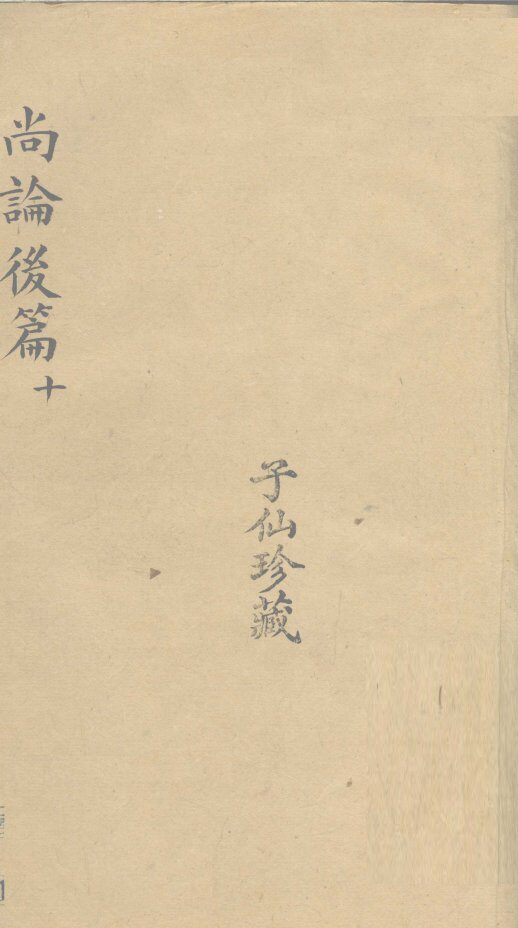 尚論後篇十
子仙珍藏